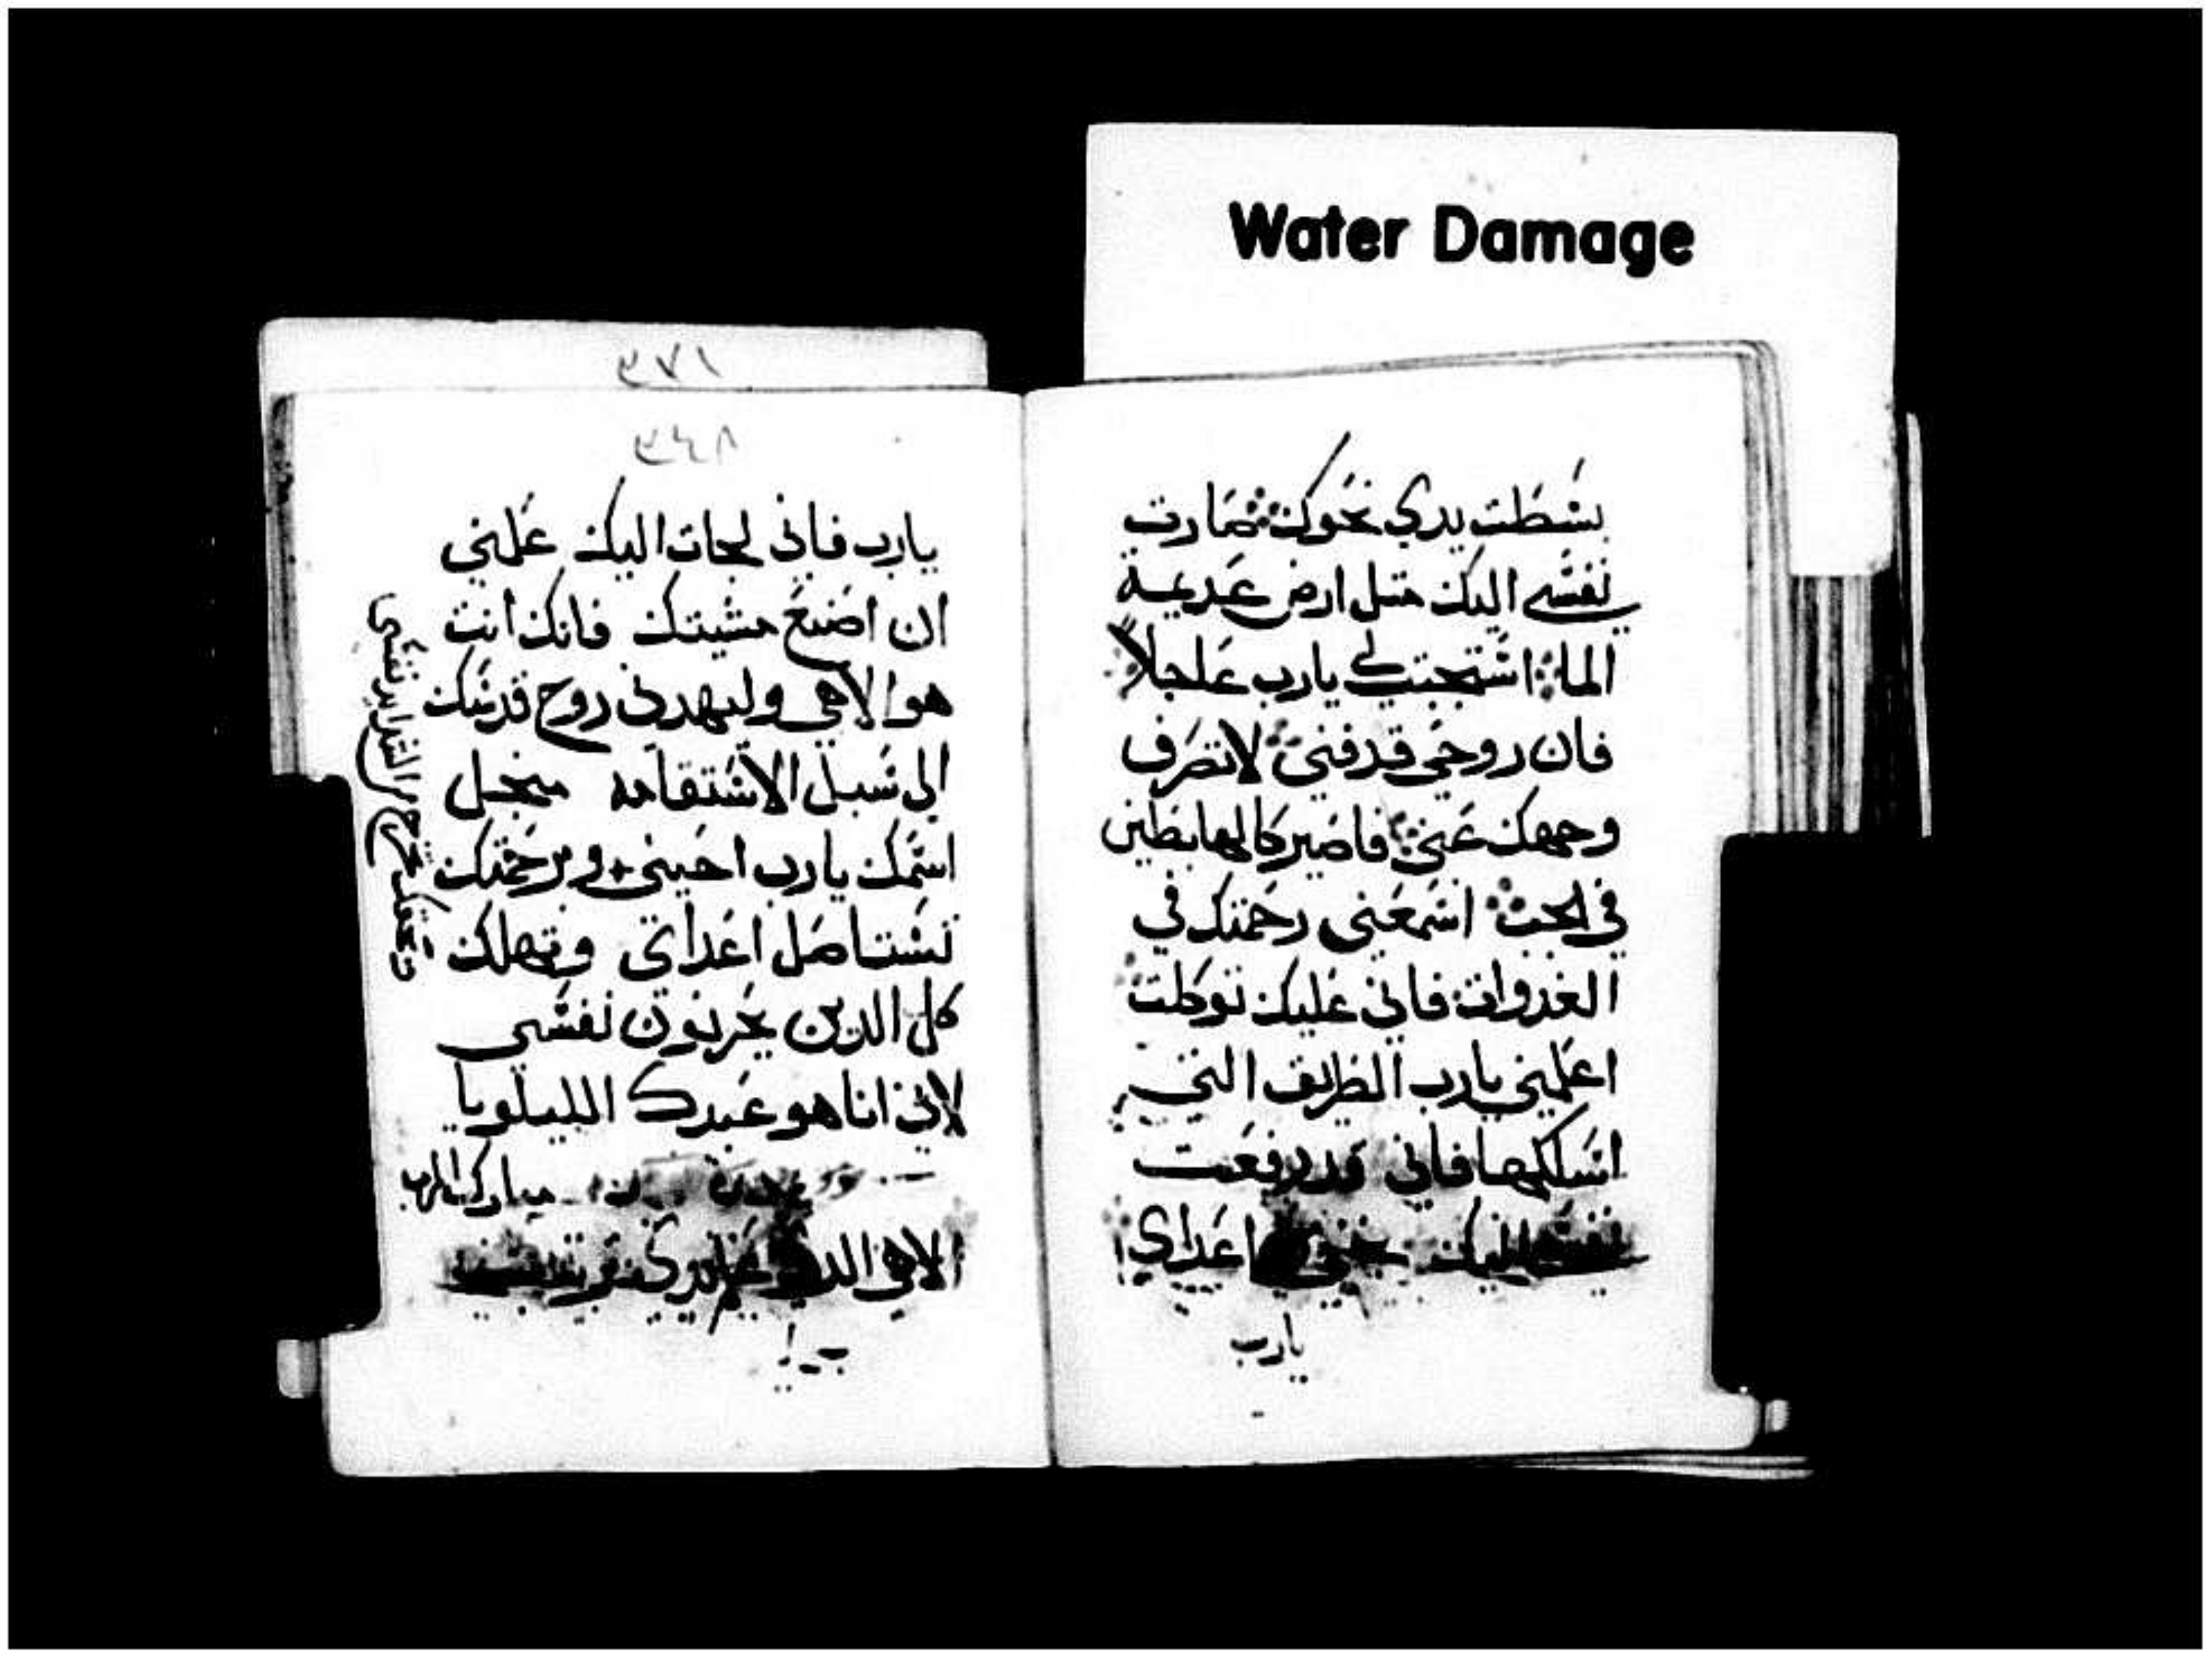 Water Damage
بسطت يدي نحوك صارت
نفسي اليك متل ارض عديمة
الما استجبت لي يارب عاجلاً
فان روحي قد فنى لا تصرف
وجهك عنى فاصير كالهابطين
في الجب اسمعنى رحمتك في
الغدوات فاني عليك توكلت
اعلمني يارب الطريق التي
اسلكها فاني قد رفعت
نفسي اليك نجني اعداي
يارب
٣٧١
٣٤٨
يارب فاني لجات اليك علمني
ان اصنع مشيتك فانك انت
هو الاهي وليهدني روح قدسك
الى سبل الاستقامه من اجل
اسمك يارب احيينى وبرحمتك
تستاصل اعداي وتهلك
كل الدين يحزنون نفسي
لاني انا هو عبدك الليلويا
مبارك الرب
الاهي الدي يدي
تخرج من الشدايد نفسى